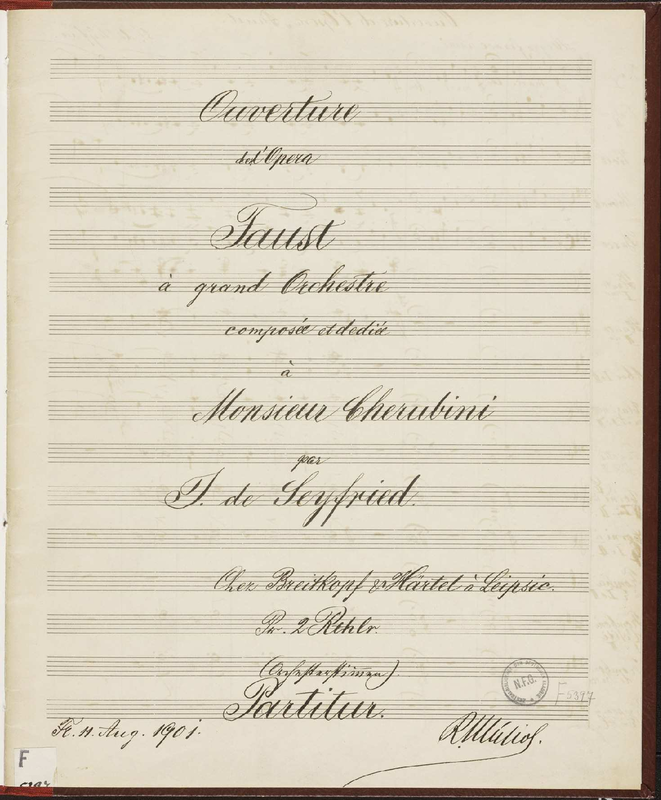 Ouverture
de l'Opera
Faust
à grand Orchestre
composée et dediée
à
Monsieur Cherubini
par
I. de Seyfried.
Chez Breitkopf & Härtel à Leipsic.
Pr. 2 Rthlr.
(Orchesterstimmen).
Partitur.
N.F.G.
F 5397
F. 4. Aug. 1901.
R. Musiol.
F